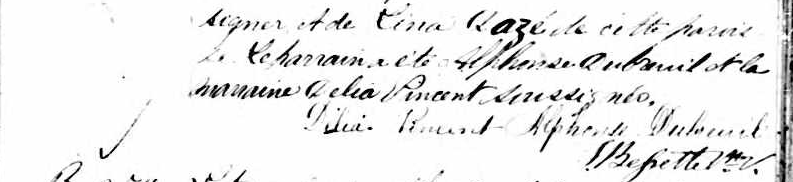 signer et de Lina Lazé de cette parois
se Le parrain a été Alphonse Dubeuil et la
marraine Delia Vincent soussignés.
Délia Vincent Alphonse Dubeuil